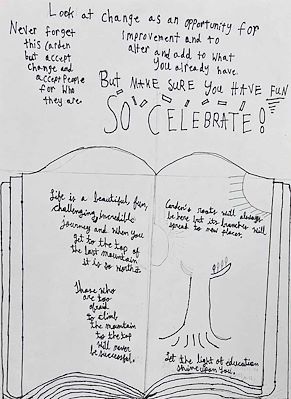 Look at change as an opportunity for
improvement and to
alter and add to what
you already have.
Never forget
this Carden
but accept
change and
accept people
for who
they are.
But MAKE SURE YOU HAVE FUN
SO CELEBRATE!
Life is a beautiful, fun,
challenging, incredible
journey and when you
get to the top of
the last mountain
it is so worth it.
Those who
are too
afraid
to climb
the mountain
to the top
will never
be successful.
Carden's roots will always
be here but its branches will
spread to new places.
Let the light of education
shine upon you.